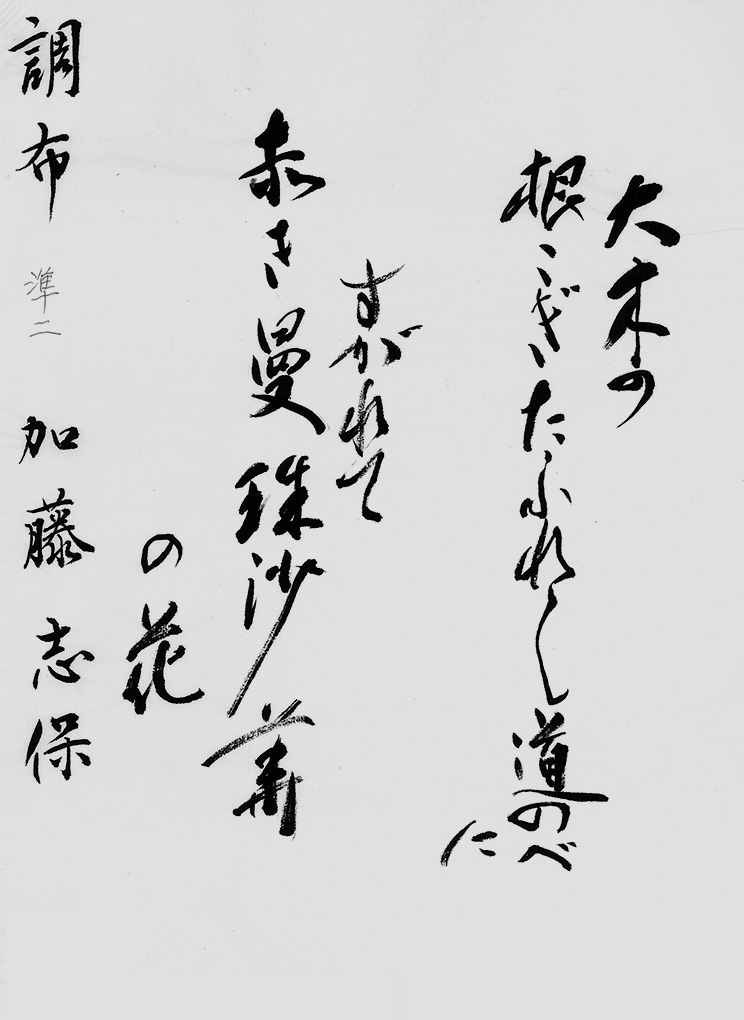 大木の
根こぎたふれし道のべ
に
すがれて
赤き曼珠沙華
の花
調布 準二 加藤志保